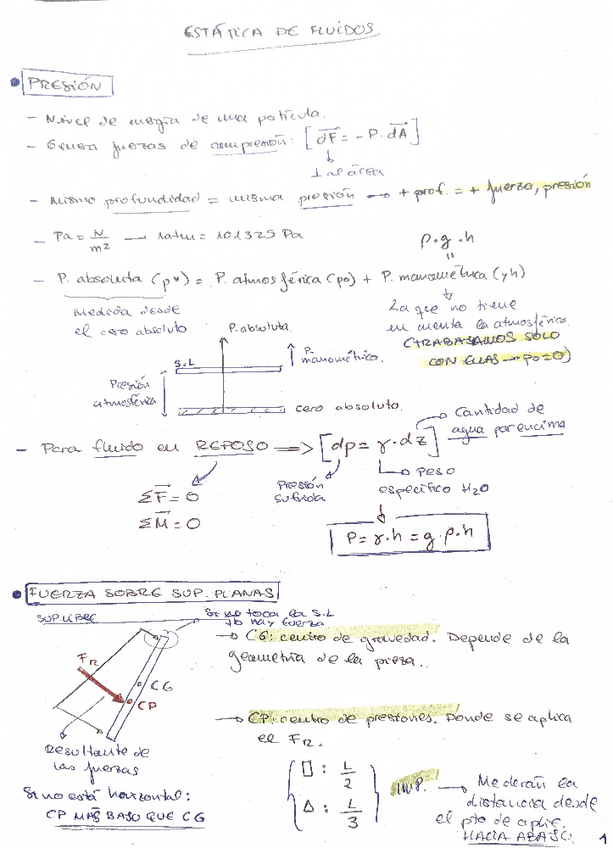 ESTÁTICA DE FLUIDOS
• PRESIÓN
- Nivel de energía de una partícula.
- Genera fuerzas de compresión: [dF = -P·dA]
⊥ al área
- Mismo profundidad = misma presión → + prof. = + fuerza, presión
- Pa = N/m² → 1 atm = 101325 Pa
ρ·g·h
- P. absoluta (p*) = P. atmosférica (po) + P. manométrica (γh)
Medida desde
el cero absoluto
La que no tiene
en cuenta la atmosférica.
(TRABAJAMOS SOLO
CON ELLAS → po=0)
P. absoluta
S.L
P. manométrica.
Presión
atmosférica
cero absoluto.
- Para fluido en REPOSO ⇒ [dp = γ·dz]
Cantidad de
agua por encima
Presión
sufrida
Peso
específico H₂O
ΣF = 0
ΣM = 0
P = γ·h = g·ρ·h
• FUERZA SOBRE SUP. PLANAS
SUP. LIBRE
Si no toca la S.L
no hay fuerza
→ CG: centro de gravedad. Depende de la
geometría de la presa.
FR
CG
CP
→ CP: centro de presiones. Donde se aplica
el FR.
Resultante de
las fuerzas
Si no está horizontal:
CP MÁS BAJO QUE CG
▯ : L/2
△ : L/3
IMP. → Me darán la
distancia desde
el pto de aplic.
HACIA ABAJO
1